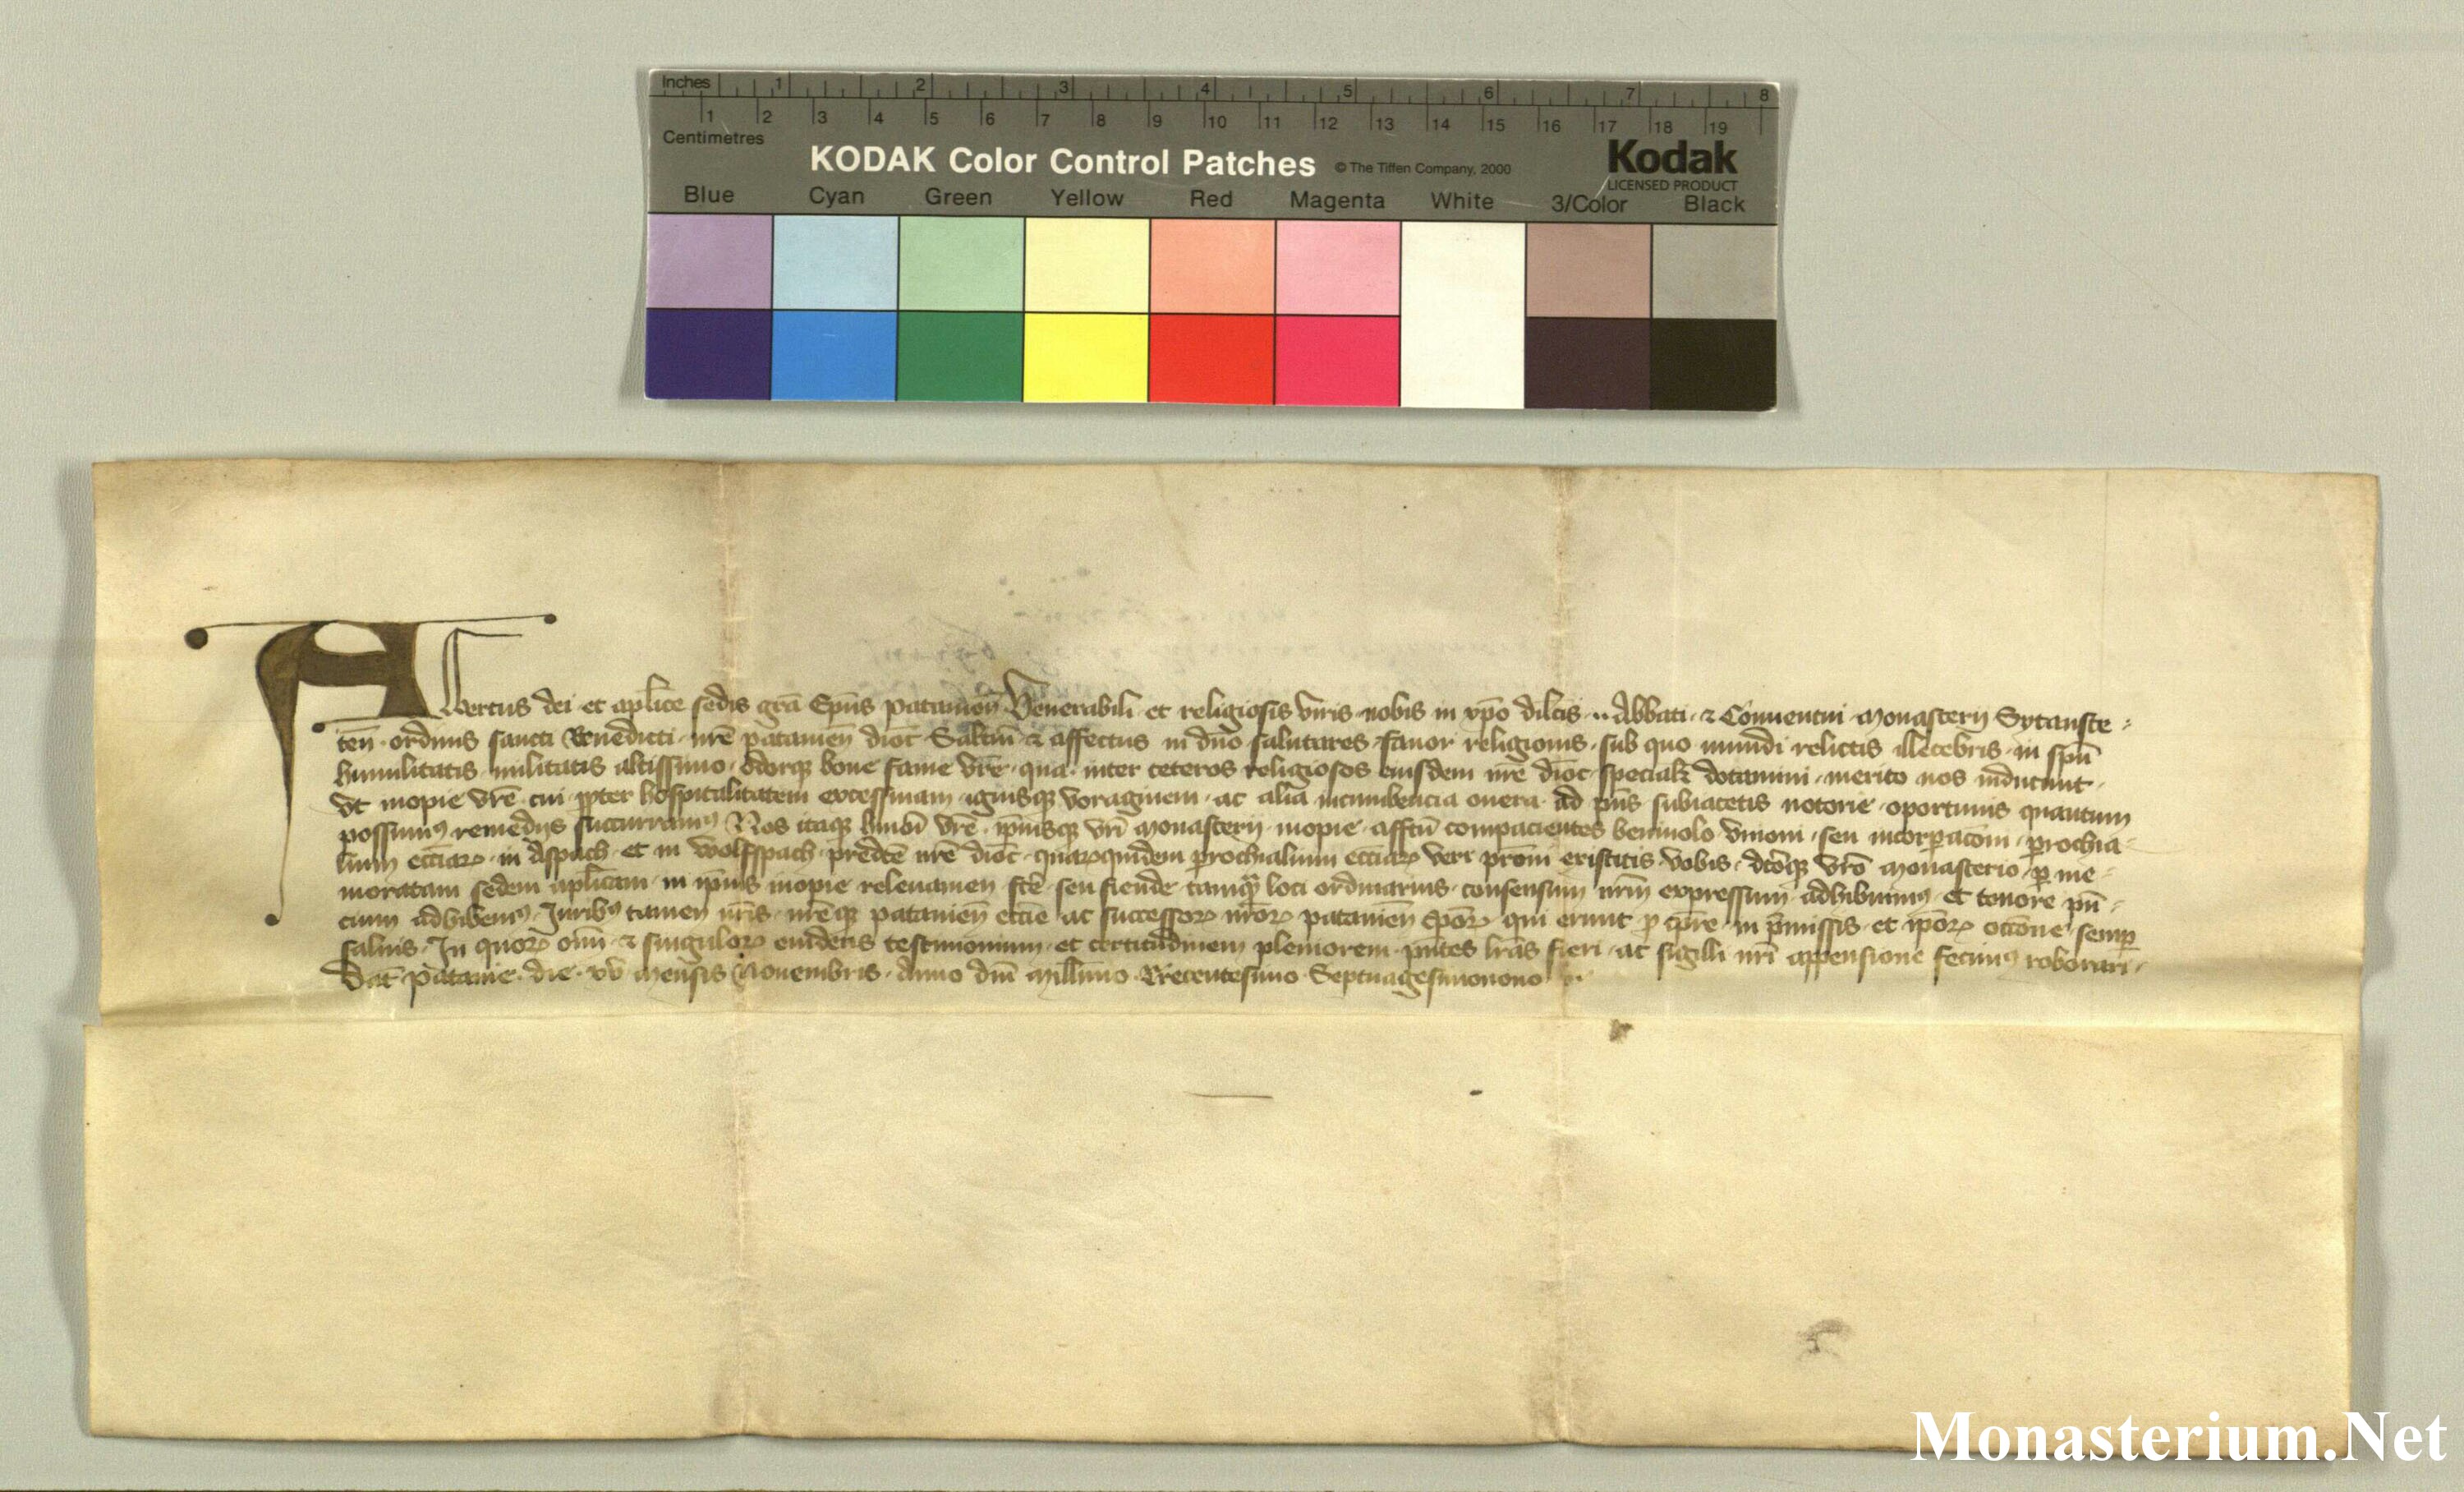 Inches 1 2 3 4 5 6 7 8
1 2 3 4 5 6 7 8 9 10 11 12 13 14 15 16 17 18 19
Centimetres
KODAK Color Control Patches © The Tiffen Company, 2000 Kodak
LICENSED PRODUCT
Blue Cyan Green Yellow Red Magenta White 3/Color Black
Albertus dei et aplice sedis gra Epus patauien Venerabili et religiosis viris nobis in xpo dilcis .. Abbati & Conuentui Monasterii Sytanste
ten ordinis sancti Benedicti nre patauien dioc Saltm & affectus in dno salutares fauor religionis sub quo mundi relictis illecebris in spu
humilitatis militatis altissimo odorque bone fame vre qua inter ceteros religiosos eiusdem nre dioc specialr dotamini merito nos inducunt
vt inopie vre cui propter hospitalitatem excessiuam ignisque voraginem ac alia incumbencia onera ad pns subiacetis notorie oportunis quantum
possumus remediis succurramus Nos itaque vre ipiusque vri Monasterii inopie affctu compacientes beniuolo vnioni seu incorporaconi parochia
lium ecciarum in Aspach et in Wolfspach predce nre dioc quarumquidem parochialium ecciarum veri proni existitis vobis dcoque vro Monasterio per me
moratam sedem aplicam in ipius inopie releuamen fce seu fiende tamquam loci ordinarius consensum nrm expressum adhibuimus et tenore pn
cium adhibemus Iuribus tamen nris nreque patauien eccie ac successorum nrorum patauien eporum qui erunt pro tpre in premissis et iporum occone semper
saluis In quorum oim & singulorum euidens testimonium et certitudinem pleniorem pntes lras fieri ac sigilli nri appensione fecimus roborari
Dat Patauie die xv Mensis Nouembris Anno dni Millimo Trecentesimo Septuagesimonono
Monasterium.Net